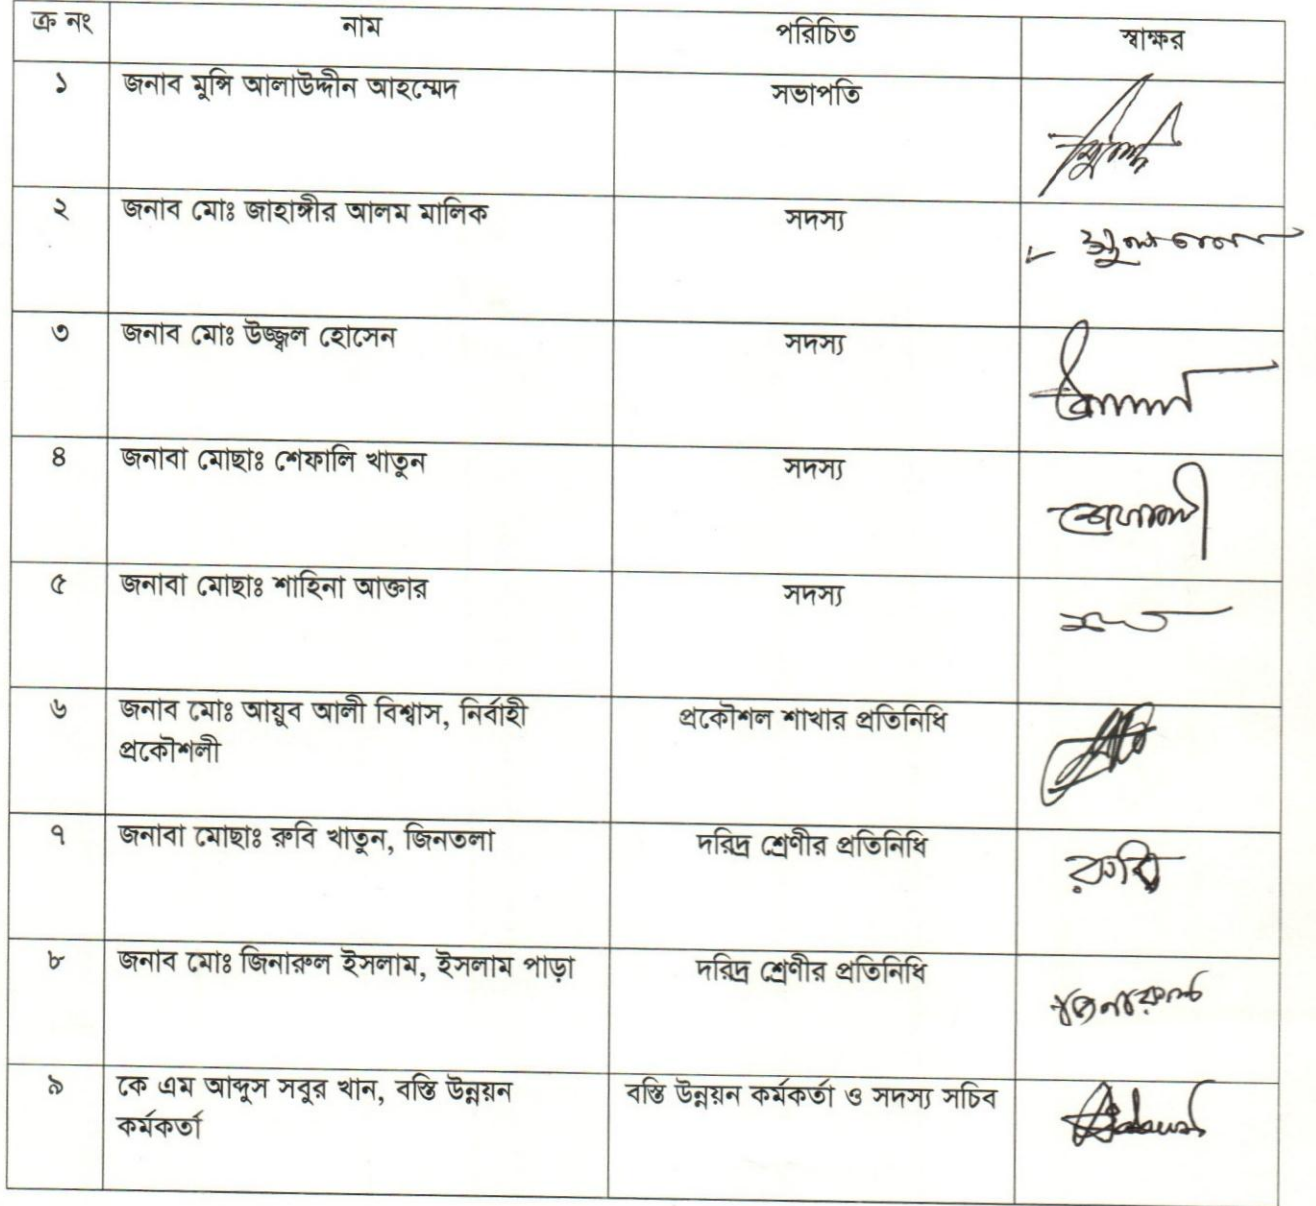 ক্র নং নাম পরিচিত স্বাক্ষর
১ জনাব মুন্সি আলাউদ্দীন আহম্মেদ সভাপতি
২ জনাব মোঃ জাহাঙ্গীর আলম মালিক সদস্য
৩ জনাব মোঃ উজ্জ্বল হোসেন সদস্য
৪ জনাবা মোছাঃ শেফালি খাতুন সদস্য
শেফালী
৫ জনাবা মোছাঃ শাহিনা আক্তার সদস্য
৬ জনাব মোঃ আয়ুব আলী বিশ্বাস, নির্বাহী প্রকৌশল শাখার প্রতিনিধি
প্রকৌশলী
৭ জনাবা মোছাঃ রুবি খাতুন, জিনতলা দরিদ্র শ্রেণীর প্রতিনিধি
রুবি
৮ জনাব মোঃ জিনারুল ইসলাম, ইসলাম পাড়া দরিদ্র শ্রেণীর প্রতিনিধি
জিনারুল
৯ কে এম আব্দুস সবুর খান, বস্তি উন্নয়ন বস্তি উন্নয়ন কর্মকর্তা ও সদস্য সচিব
কর্মকর্তা